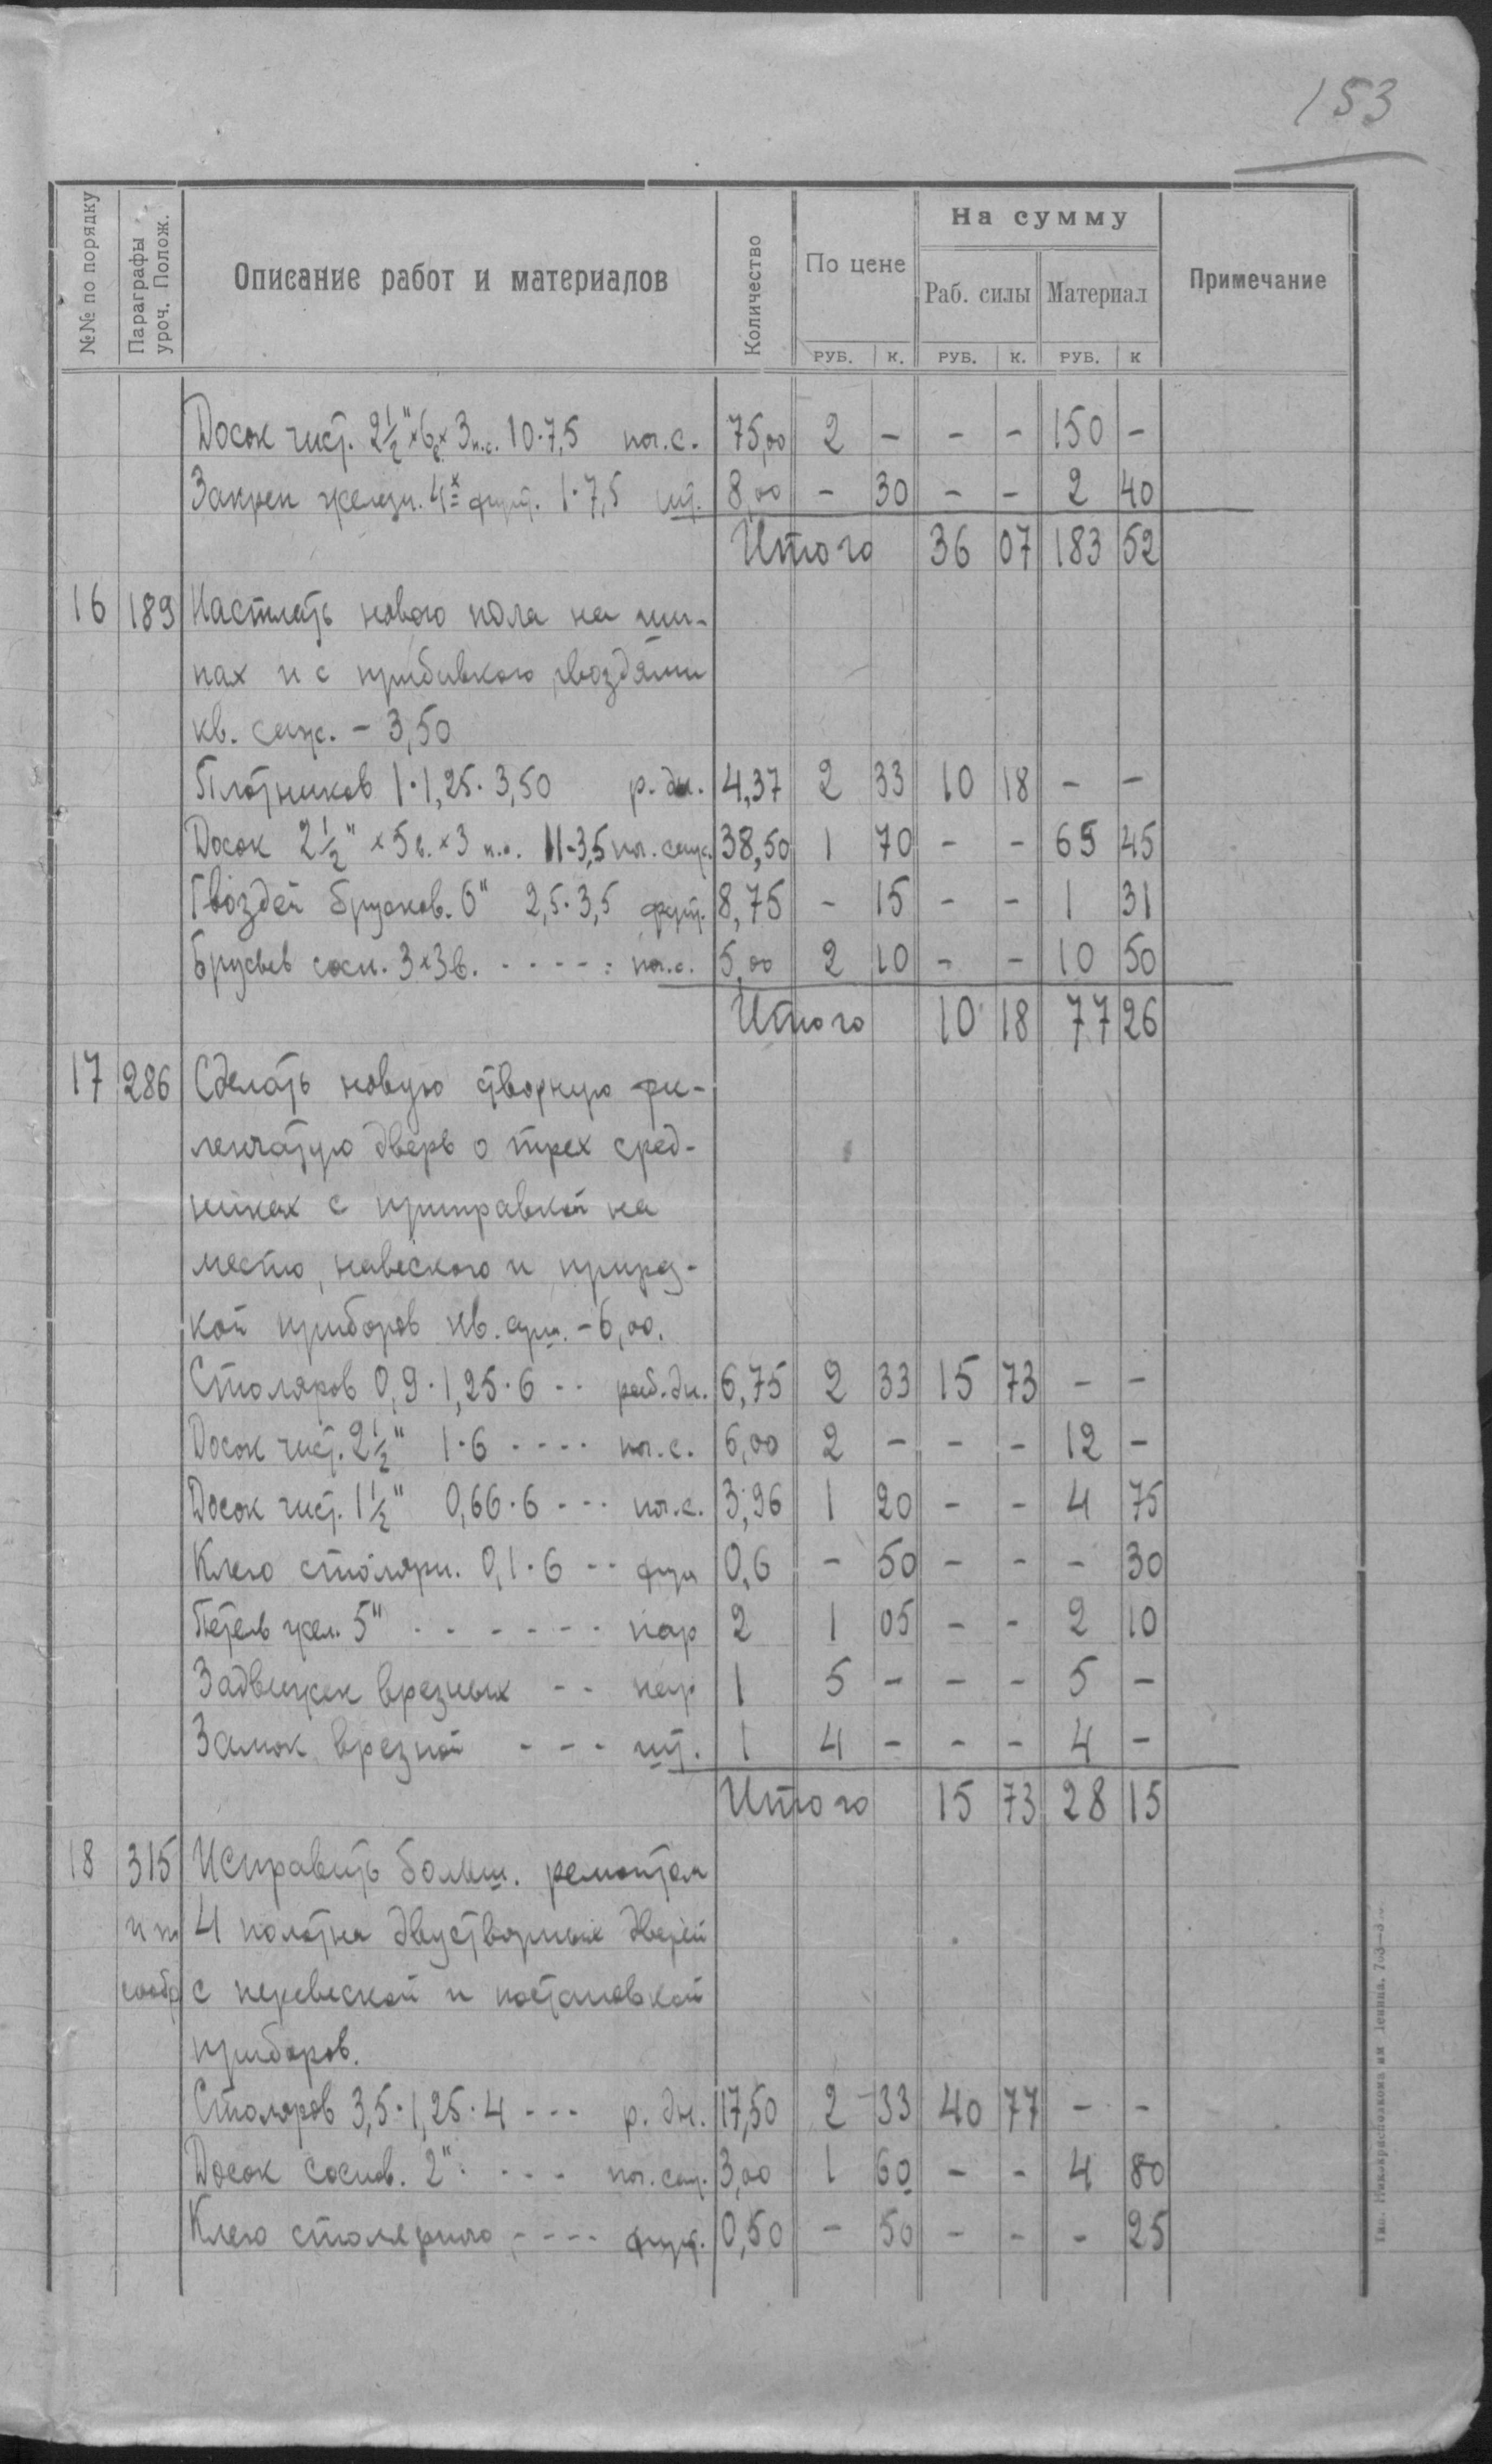 153
№№ по порядку
Параграфы уроч. Полож.
Описание работ и материалов
Количество
По цене
На сумму
Раб. силы
Материал
Примечание
РУБ. К. РУБ. К. РУБ. К
Досок чист. 2½" × 6в × 3 п.с. 10·7,5 пог.с. 75,00 2 – – – 150 –
Закреп железн. 4х фунт. 1·7,5 шт. 8,00 – 30 – – 2 40
Итого 36 07 183 52
16 189 Настлать нового пола на ши-
пах и с прибивкою гвоздями
кв. саж. – 3,50
Плотников 1·1,25·3,50 р. дн. 4,37 2 33 10 18 – –
Досок 2½" × 5в. × 3 п.с. 11·3,5 пог. саж. 38,50 1 70 – – 65 45
Гвоздей брусков. 6" 2,5·3,5 фунт. 8,75 – 15 – – 1 31
Брусьев сосн. 3×3в. - - - - - пог.с. 5,00 2 10 – – 10 50
Итого 10 18 77 26
17 286 Сделать новую створную фи-
ленчатую дверь о трех сред-
никах с приправкой на
место, навескою и прирез-
кой приборов кв. арш. – 6,00.
Столяров 0,9·1,25·6 - - раб. дн. 6,75 2 33 15 73 – –
Досок чист. 2½" 1·6 - - - - пог.с. 6,00 2 – – – 12 –
Досок чист. 1½" 0,66·6 - - - пог.с. 3,96 1 20 – – 4 75
Клею столярн. 0,1·6 - - фун 0,6 – 50 – – – 30
Петель жел. 5" - - - - - - - пар 2 1 05 – – 2 10
Задвижек врезных - - пар 1 5 – – – 5 –
Замок врезной - - - шт. 1 4 – – – 4 –
Итого 15 73 28 15
18 315 Исправить больш. ремонтом
и по 4 полотна двустворных дверей
сообр с перевеской и постановкой
приборов.
Столяров 3,5·1,25·4 - - - р. дн. 17,50 2 33 40 77 – –
Досок соснов. 2" - - - - пог. саж. 3,00 1 60 – – 4 80
Клею столярного - - - - фунт. 0,50 – 50 – – – 25